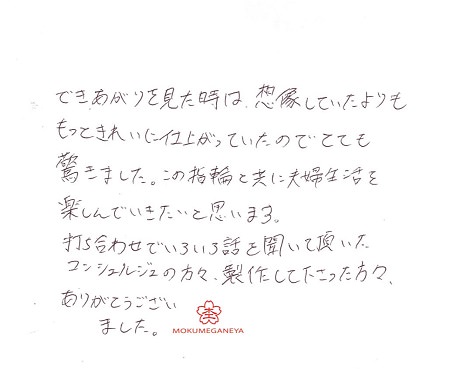 できあがりを見た時は、想像していたよりも
もっときれいに仕上がっていたのでとても
驚きました。この指輪と共に夫婦生活を
楽しんでいきたいと思います。
打ち合わせでいろいろ話を聞いて頂いた
コンシェルジュの方々、製作して下さった方々、
ありがとうござい
ました。
MOKUMEGANEYA